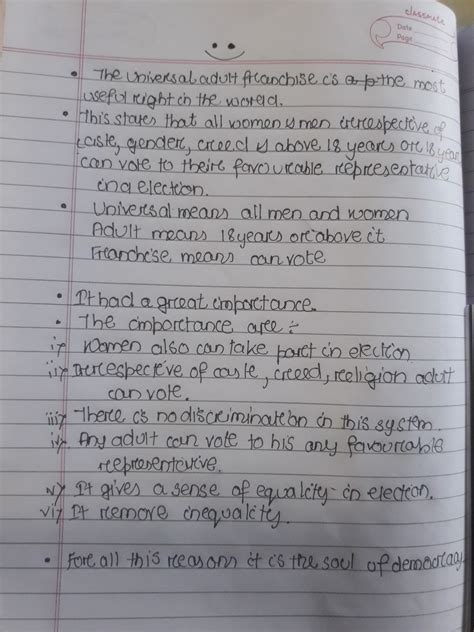 classmate
Date
Page
• The Universal adult franchise is a p the most
useful right in the world.
• This states that all women & men irrespective of
caste, gender, creed & above 18 years or 18 year
can vote to their favourable representative
in a election.
• Universal means all men and women
Adult means 18 years or above it
Franchise means can vote
• It had a great importance.
• The importance are :-
i) Women also can take part in election
ii) Irrespective of caste, creed, religion adult
can vote.
iii) There is no discrimination in this system.
iv) Any adult can vote to his any favourable
representative.
v) It gives a sense of equality in election.
vi) It remove inequality.
• For all this reasons it is the soul of democracy